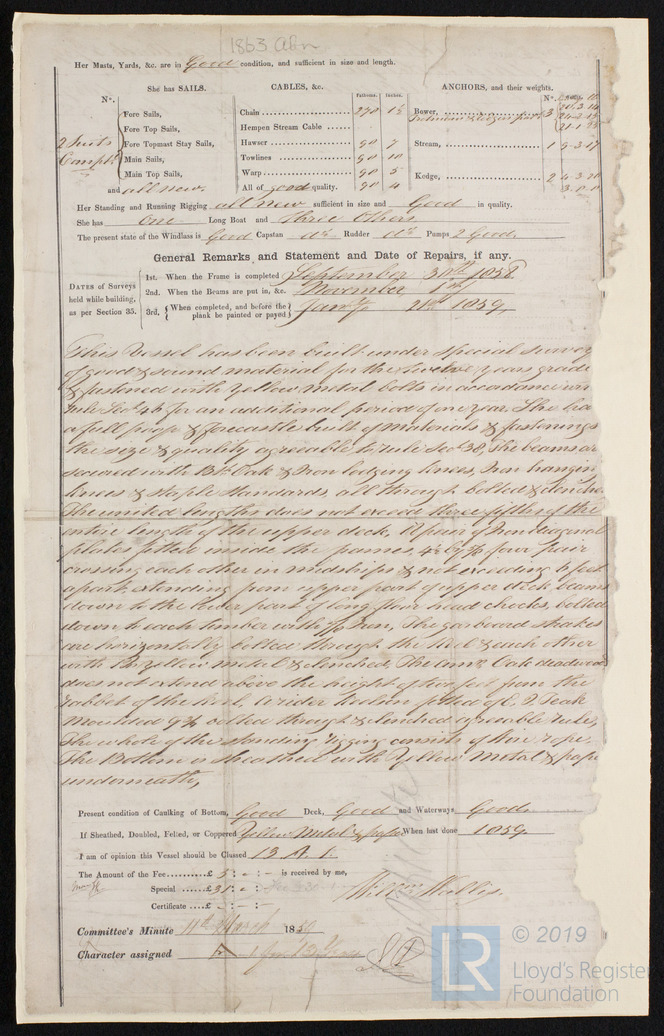 1863 Abn
Her Masts, Yards, &c. are in Good condition, and sufficient in size and length.
She has SAILS.
N°.
2 Suits Complt.
Fore Sails,
Fore Top Sails,
Fore Topmast Stay Sails,
Main Sails,
Main Top Sails,
and all new.
CABLES, &c.
Fathoms. Inches.
Chain 270 1½
Hempen Stream Cable
Hawser 90 7
Towlines 90 10
Warp 90 5
All of good quality. 90 4
ANCHORS, and their weights.
N°.
Bower, 3
Stream, 1 9-3-17
Kedge, 2 4-3-20
3-0-0
Her Standing and Running Rigging all new sufficient in size and Good in quality.
She has One Long Boat and Three Others
The present state of the Windlass is Good Capstan do. Rudder do. Pumps 2 Good.
General Remarks, and Statement and Date of Repairs, if any.
DATES of Surveys held while building, as per Section 35.
1st. When the Frame is completed September 30th 1858
2nd. When the Beams are put in, &c. November 1st
3rd. {When completed, and before the plank be painted or payed} Jany. 21st 1859,
This Vessel has been built under special survey
of good & sound material for the twelve years grade
& fastened with Yellow metal bolts in accordance with
rule Sec. 46 for an additional period of one year. She has
a full poop & forecastle built of materials & fastenings
the size & quality agreeable to rule Sec. 38, The beams are
secured with Oak & Iron lodging knees, Iron hanging
knees & staple standards, all through bolted & clenched
The united lengths does not exceed three fifths of the
entire length of the upper deck. A pair of Iron diagonal
plates fitted inside the frames, four pair
crossing each other in midships & not exceeding 6 feet
apart, extending from upper part of upper deck beams
down to the lower part of long floor head chocks, bolted
down to each timber with Iron, The garboard strakes
are horizontally bolted through the keel & each other
with yellow metal & clenched, The Amn. Oak deadwood
does not extend above the height of two feet from the
rabbet of the keel. A rider kelson fitted of E. I. Teak
moulded bolted through & clenched agreeable rule,
The whole of the standing rigging consists of Wire rope.
The Bottom is sheathed with Yellow Metal &
underneath,
Present condition of Caulking of Bottom, Good Deck, Good and Waterways Good
If Sheathed, Doubled, Felted, or Coppered Yellow Metal & When last done 1859
I am of opinion this Vessel should be Classed 13 A. 1.
The Amount of the Fee £ 5 : - : - is received by me,
Special £ 31 : - : -
Certificate £ - : - : -
Willm Wallis
Committee's Minute 11th March 1859
Character assigned A 1 for 13 Years
LR
© 2019
Lloyd's Register
Foundation